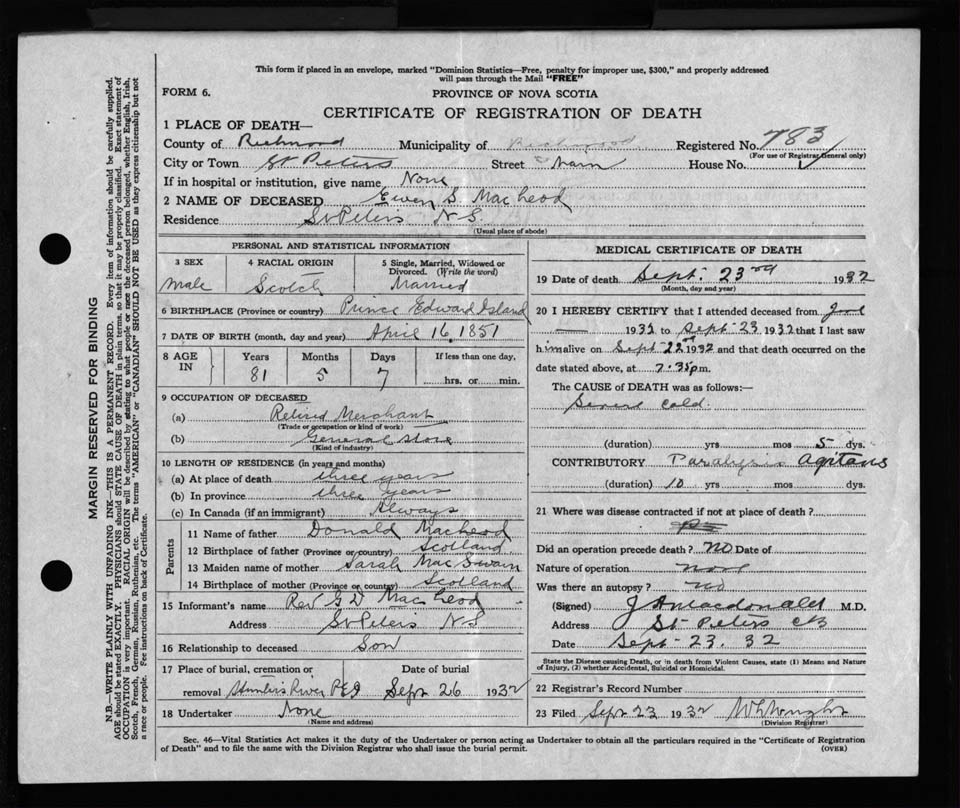 This form if placed in an envelope, marked "Dominion Statistics—Free, penalty for improper use, $300," and properly addressed
will pass through the Mail "FREE"
FORM 6.
PROVINCE OF NOVA SCOTIA
CERTIFICATE OF REGISTRATION OF DEATH
1 PLACE OF DEATH—
County of Richmond Municipality of Richmond Registered No. 783
(For use of Registrar General only)
City or Town St Peters Street Main House No.
If in hospital or institution, give name None
2 NAME OF DECEASED Ewen S. MacLeod
Residence St Peters N S
(Usual place of abode)
PERSONAL AND STATISTICAL INFORMATION
3 SEX
Male
4 RACIAL ORIGIN
Scotch
5 Single, Married, Widowed or
Divorced. (Write the word)
Married
6 BIRTHPLACE (Province or country) Prince Edward Island
7 DATE OF BIRTH (month, day and year) April 16 1851
8 AGE IN
Years Months Days If less than one day,
81 5 7 hrs. or min.
9 OCCUPATION OF DECEASED
(a) Retired Merchant
(Trade or occupation or kind of work)
(b) General Store
(Kind of industry)
10 LENGTH OF RESIDENCE (in years and months)
(a) At place of death three years
(b) In province three years
(c) In Canada (if an immigrant) Always
Parents
11 Name of father Donald MacLeod
12 Birthplace of father (Province or country) Scotland
13 Maiden name of mother Sarah MacSwain
14 Birthplace of mother (Province or country) Scotland
15 Informant's name Rev G D MacLeod
Address St Peters N S
16 Relationship to deceased Son
17 Place of burial, cremation or Date of burial
removal Hunters River P E I Sept 26 1932
18 Undertaker None
(Name and address)
MEDICAL CERTIFICATE OF DEATH
19 Date of death Sept. 23rd 1932
(Month, day and year)
20 I HEREBY CERTIFY that I attended deceased from
1932 to Sept 23 1932 that I last saw
him alive on Sept 22nd 1932 and that death occurred on the
date stated above, at 7.35 p.m.
The CAUSE OF DEATH was as follows:—
Severe Cold.
(duration) yrs mos 5 dys.
CONTRIBUTORY Paralysis Agitans
(duration) 10 yrs mos dys.
21 Where was disease contracted if not at place of death?
Did an operation precede death? No Date of
Nature of operation None
Was there an autopsy? No
(Signed) J A Macdonald M.D.
Address St Peters CB
Date Sept 23. 32
State the Disease causing Death, or in death from Violent Causes, state (1) Means and Nature
of Injury, (2) whether Accidental, Suicidal or Homicidal.
22 Registrar's Record Number
23 Filed Sept 23 1932
(Division Registrar)
Sec. 46—Vital Statistics Act makes it the duty of the Undertaker or person acting as Undertaker to obtain all the particulars required in the "Certificate of Registration
of Death" and to file the same with the Division Registrar who shall issue the burial permit.
(OVER)
MARGIN RESERVED FOR BINDING
N.B.—WRITE PLAINLY WITH UNFADING INK—THIS IS A PERMANENT RECORD. Every item of information should be carefully supplied.
AGE should be stated EXACTLY. PHYSICIANS should STATE CAUSE OF DEATH in plain terms, so that it may be properly classified. Exact statement of
OCCUPATION is very important. RACIAL ORIGIN will be described by stating to what people or race the deceased person belonged, whether English, Irish,
Scotch, French, German, Russian, Ruthenian, etc. The terms "AMERICAN" or "CANADIAN" SHOULD NOT BE USED as they express citizenship but not
a race or people. Fee instructions on back of Certificate.